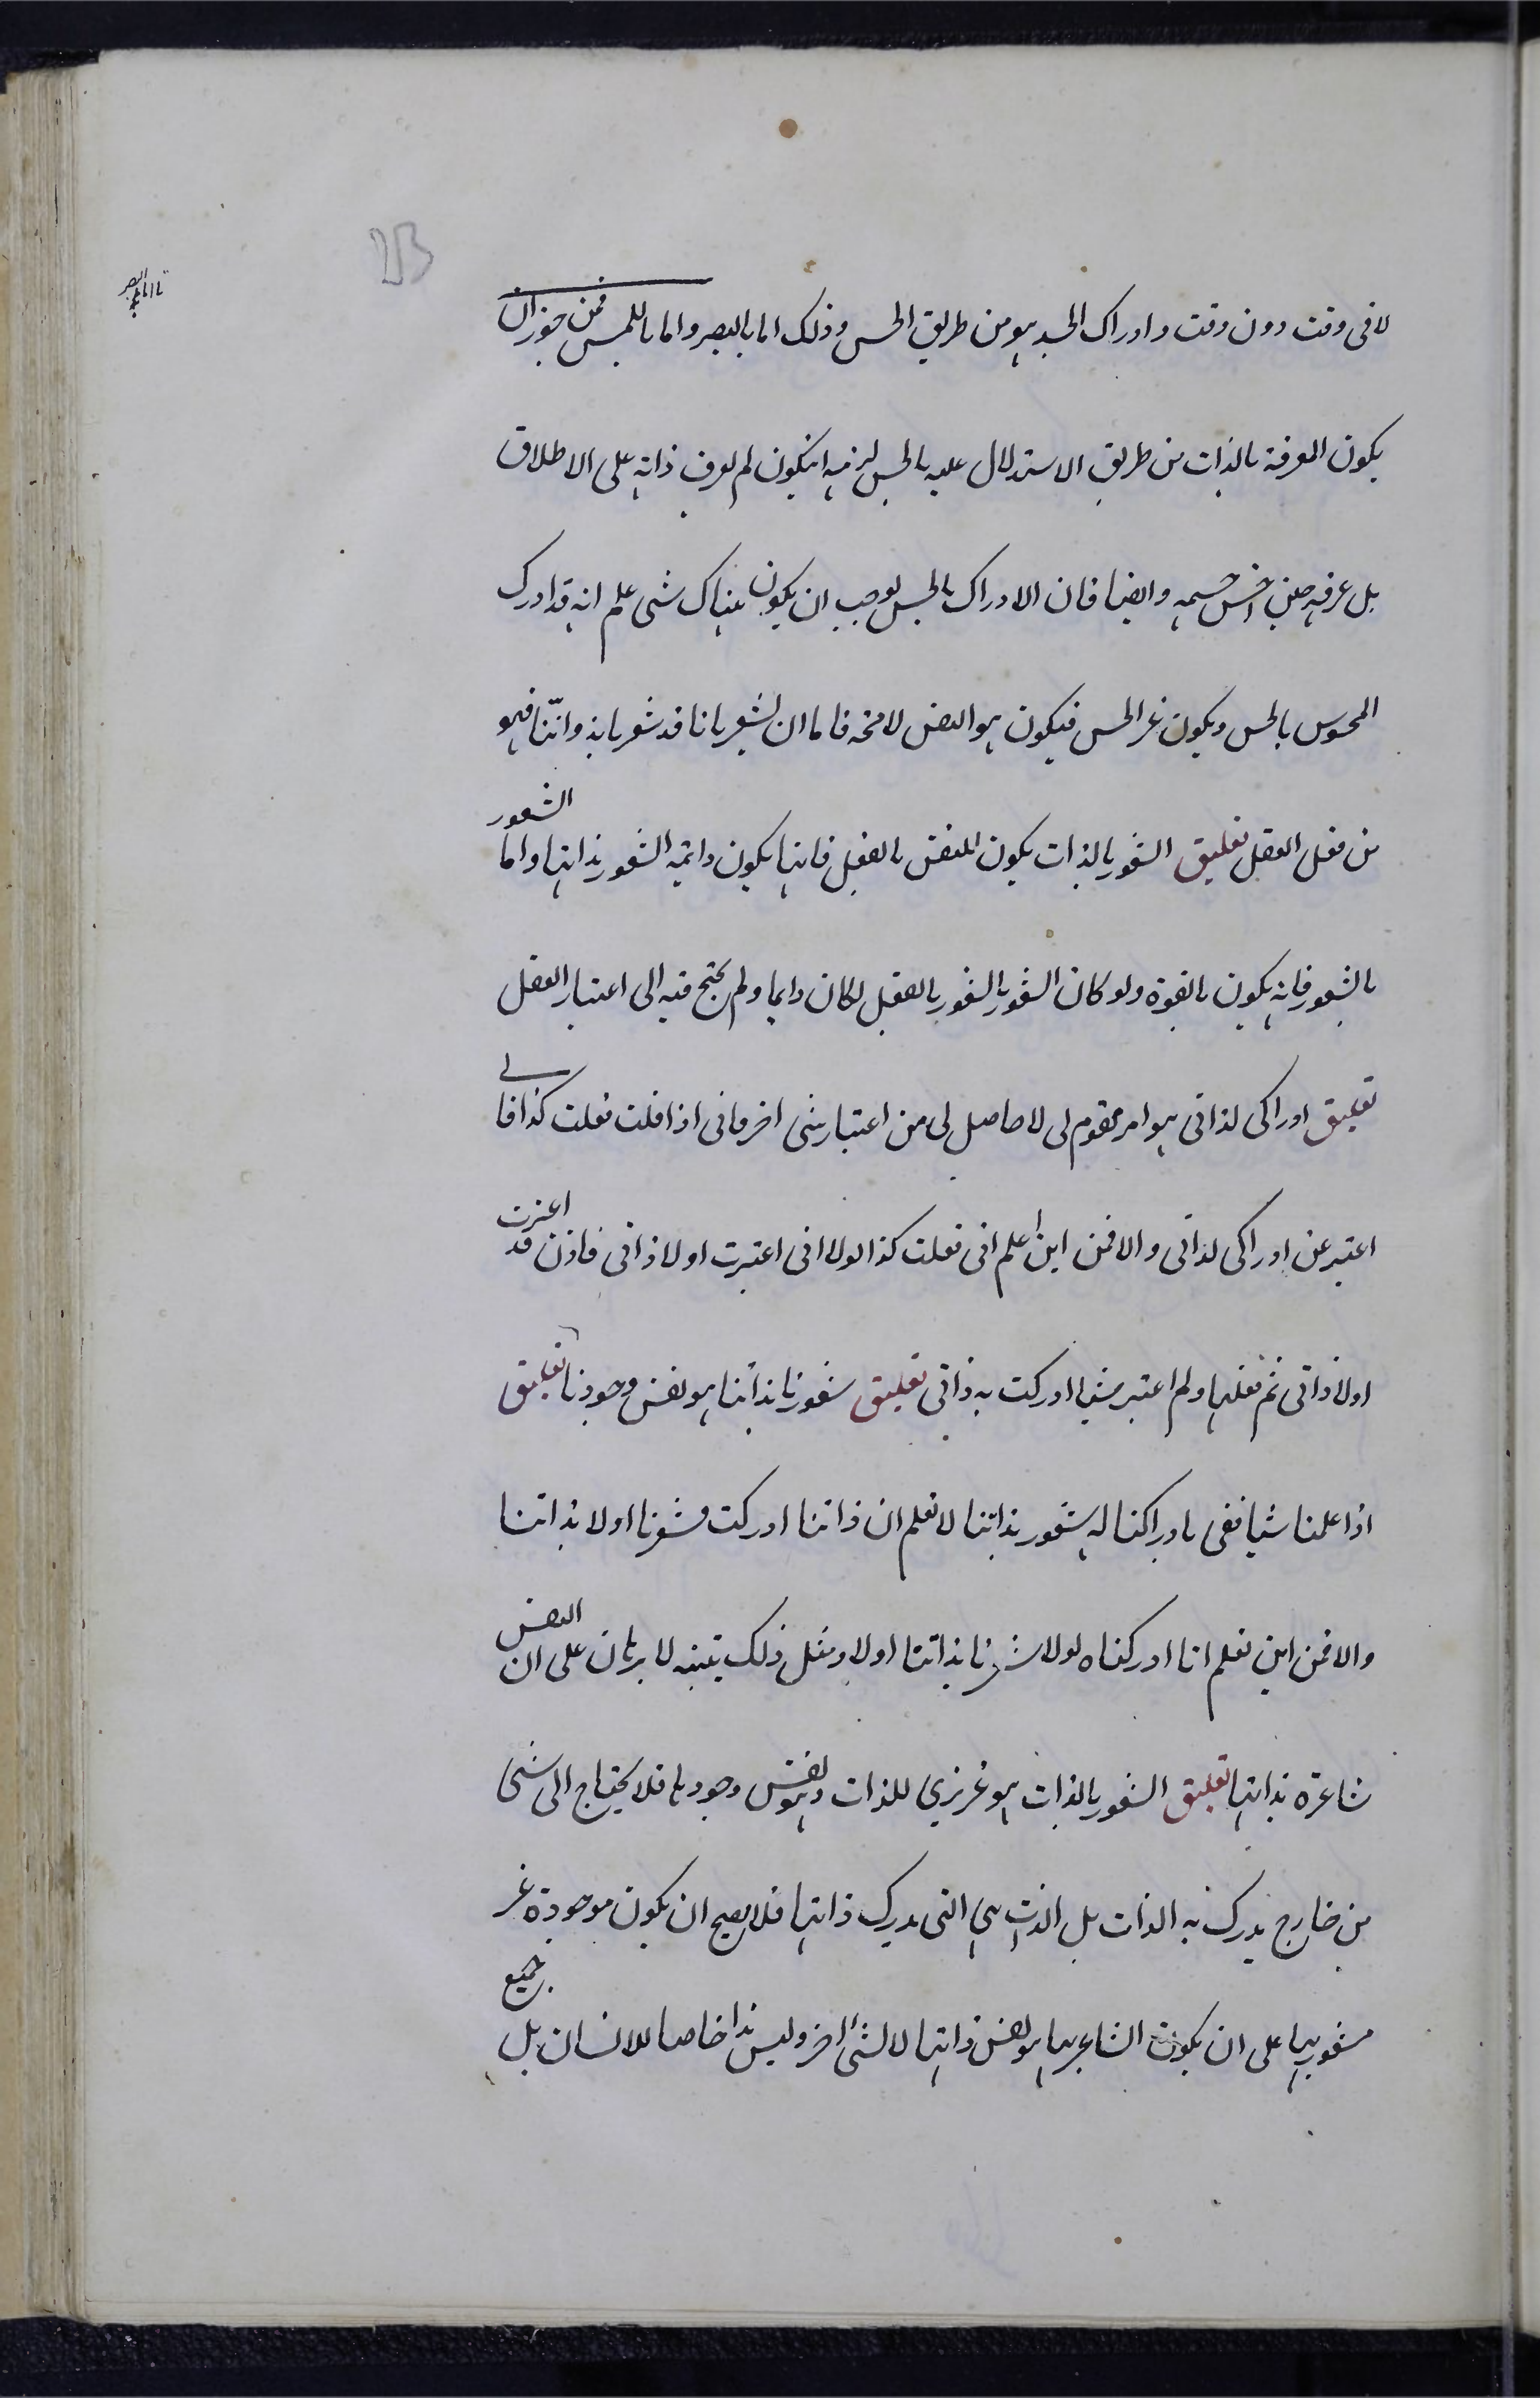 لا فى وقت دون وقت وادراك الجسد هو من طريق الحس وذلك اما بالبصر واما باللمس فمن جوز ان
يكون المعرفة بالذات من طريق الاستدلال عليه بالحس لزمه ان يكون لم يعرف ذاته على الاطلاق
بل عرفه حين احس جسمه وايضا فان الادراك بالحس يوجب ان يكون هناك شى علم انه قد ادرك
المحسوس بالحس ويكون غير الحس فيكون هو النفس لا محة فاما ان يشعر بانا قد شعر بانه واننّا فهو
من فعل العقل تعليق الشعور بالذات يكون للنفس بالفعل فانها يكون دائمة الشعور بذاتها واما الشعور
بالشعور فانه يكون بالقوة ولو كان الشعور بالشعور بالفعل لكان دايما ولم يحتج فيه الى اعتبار العقل
تعليق ادراكى لذاتى هو امر مقوم لى لا حاصل لى من اعتبار شى اخر فانى اذا قلت فعلت كذا فانى
اعتبر عن ادراكى لذاتى والا فمن اين اعلم انى فعلت كذا لولا انى اعتبرت اولا ذاتى فاذن قد اعتبرت
اولا ذاتى ثم فعلها ولم اعتبر شيا ادركت به ذاتى تعليق شعورنا بذاتنا هو نفس وجودنا تعليق
اذا علمنا شيا ففى بادراكنا له شعور بذاتنا لا نعلم ان ذاتنا ادركت فشعرنا اولا بذاتنا
والا فمن اين نعلم انا ادركناه لولا شعرنا بذاتنا اولا ومثل ذلك تنبيه لا برهان على ان النفس
شاعرة بذاتها تعليق الشعور بالذات هو غريزي للذات وهو نفس وجودها فلا يحتاج الى شى
من خارج يدرك به الذات بل الذات هى التى يدرك ذاتها فلا يصح ان يكون موجودة غير
مشعور بها على ان يكون الشاعر بها هو نفس ذاتها لا لشئ اخر وليس هذا خاصا للانسان بل جميع